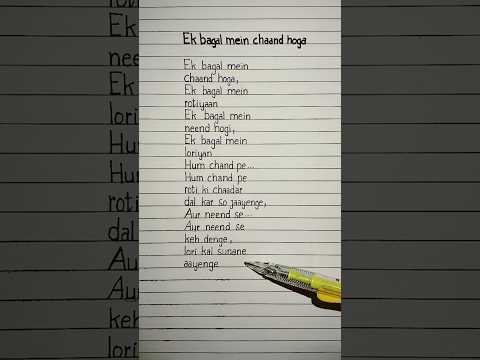 Ek bagal mein chaand hoga
Ek bagal mein
Chaand hoga,
Ek bagal mein
rotiyaan
Ek bagal mein
neend hogi,
Ek bagal mein
loriyan
Hum chand pe...
Hum chand pe
roti ki chaadar
dal kar so jaayenge,
Aur neend se...
Aur neend se
keh denge,
lori kal sunane
aayenge